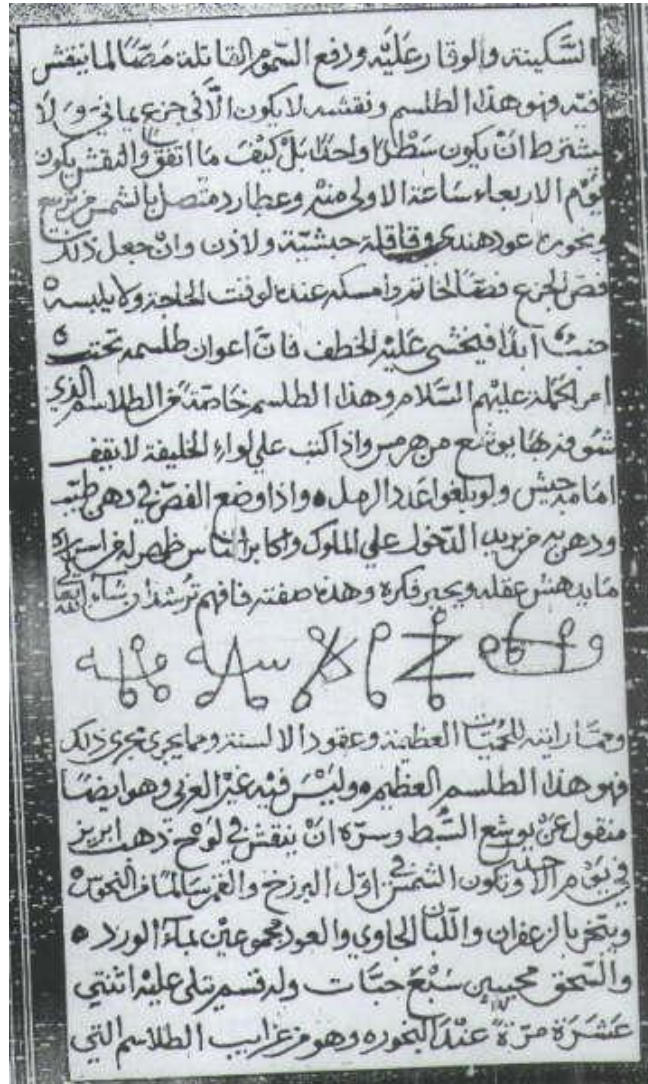 السَّكينة والوقار عَليْه ورفع السّموم القاتلة مَصًّا لما ينقش
فيه فهو هذا الطلسم ونقشه لا يكون الّا في جزع يماني وَلَا
يشترط انْ يكون سَطْرًا واحدًا بَلْ كَيْفَ مَا اتفق والنقش يكون
يَوْم الاربعاء سَاعَة الاولى منه وعطارد متصل بالشمس من تربيع
وبخوره عود هندي وقاقلة حبشيّة ولاذن وانْ جعل ذلك
فصّ الجزع فصًّا لخاتم وامسكه عنده لوقت الحاجة ولا يلبسه
جنبًا ابدًا فيخشى عَليْه الخطف فانّ اعوان طلسمه تحت
امر الحملة عليهم السَّلام وهذا الطلسم خاصّة من الطلاسم الذي
بوشع من هرمس واذا كتب علي لواءِ الخليفة لا يقف
امامه جيش ولو بلغوا عدد الرمل واذا وضع الفصّ في دهن طيّب
ودهن به من يريد الدّخول علي الملوك واكابر الناس ظهر له من اسراره
ما يدهش عقله ويحير فكره وهذه صفته فافهم ترشد ان شاء الله تعالى
وممّا رايته للحميات العظيمة وعقود الالسنة وما يجري مجري ذلك
فهو هذا الطلسم العظيم وليْسَ فيْه غيْر العزبي وهو ايضًا
منقول عَنْ بوشع السّبط وسرّه انْ ينقش في لَوْح ذهب ابريز
في يَوْم الاحد وتكون الشمس في اوّل البرزخ والقمر سَالمًا من النحوس
ويبخر بالزعفران واللّبان الجاوي والعود مجموعيْن بماءَ الورد
والسّحق محببين سَبْعَ حبَّات وله قسم يتلى عليْه اثنتي
عَشَرَة مَرّةً عنْدَ البخوره وهو من غرايب الطلاسم التي